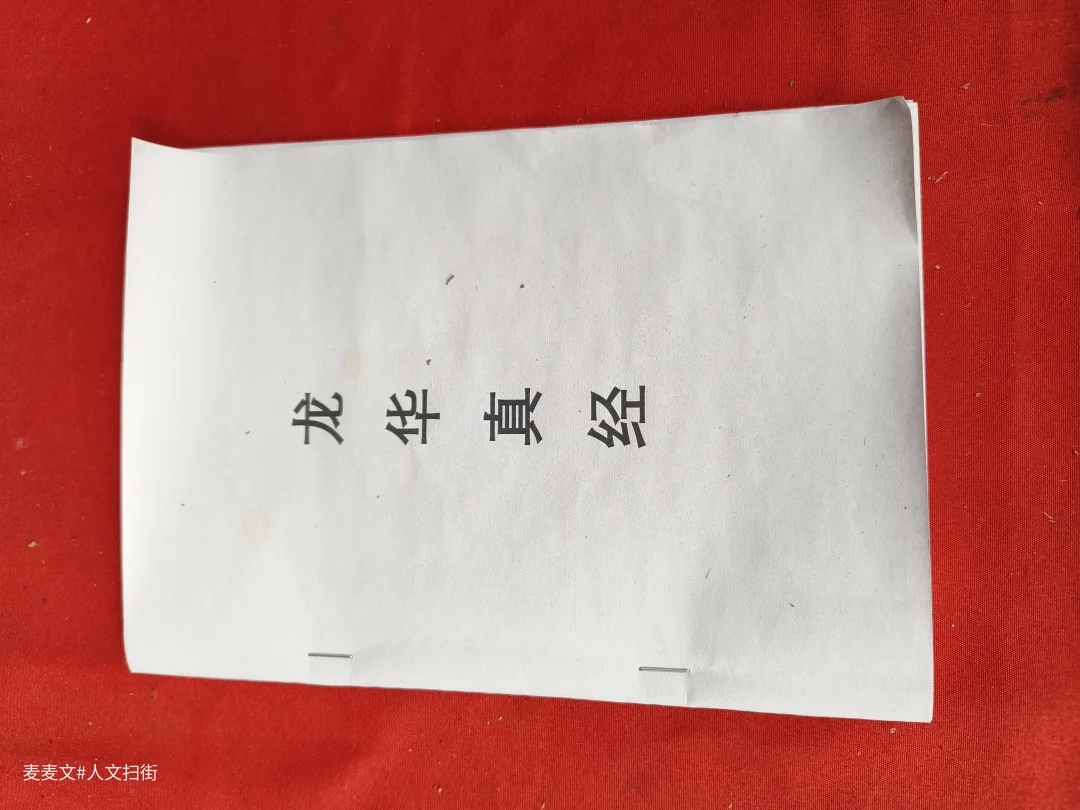 龙华真经
麦麦文#人文扫街